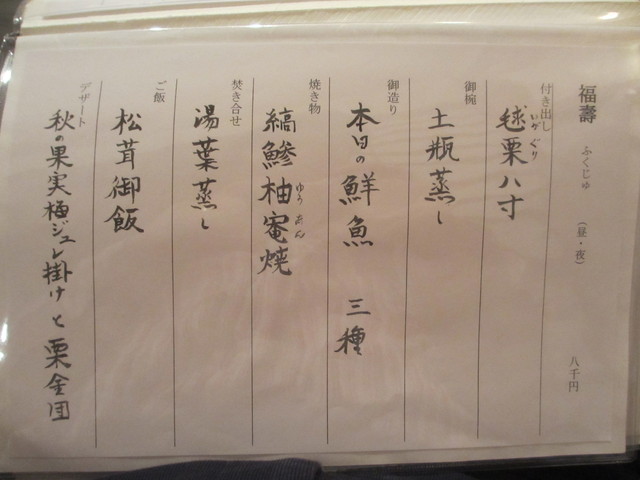 福壽 ふくじゅ (昼・夜) 八千円
付き出し
毬栗八寸
いがぐり
御椀
土瓶蒸し
御造り
本日の鮮魚 三種
焼き物
縞鯵柚庵焼
ゆうあん
焚き合せ
湯葉蒸し
ご飯
松茸御飯
デザート
秋の果実梅ジュレ掛けと栗金団